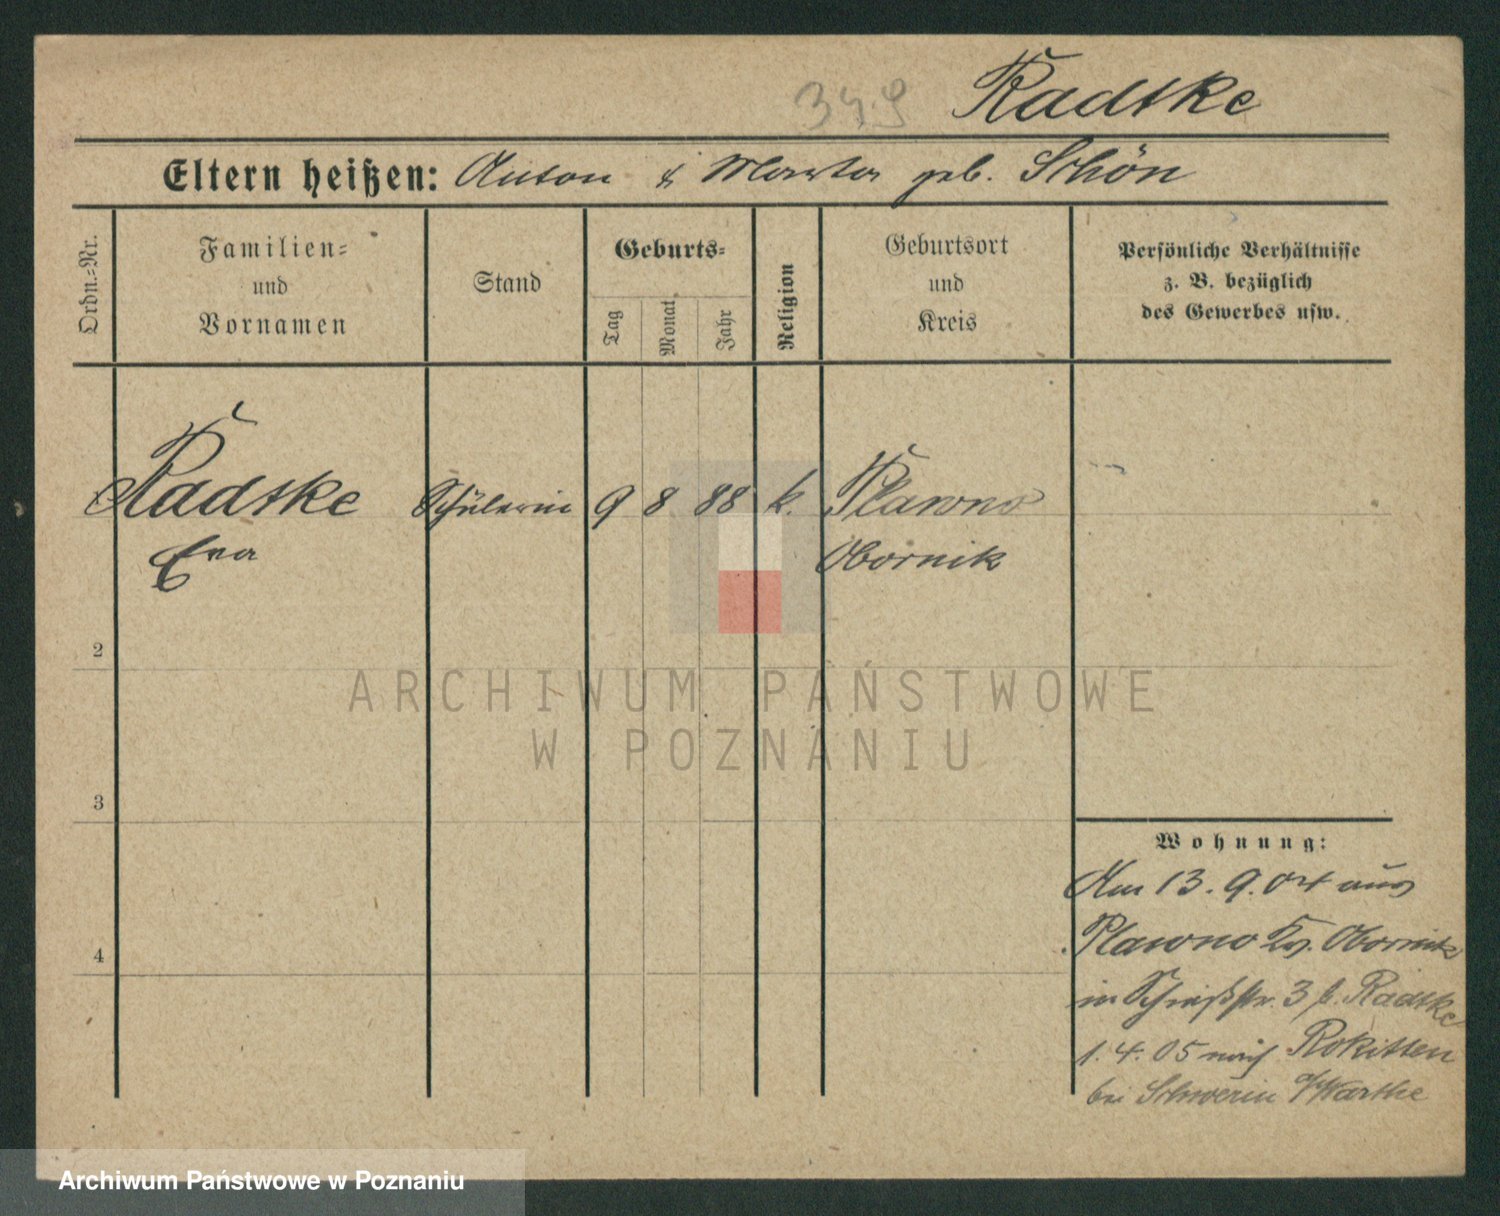 349 Radtke
Eltern heißen: Anton & Marta geb. Schön
Ordn.-Nr.
Familien-
und
Vornamen
Stand
Geburts-
Tag
Monat
Jahr
Religion
Geburtsort
und
Kreis
Persönliche Verhältnisse
z. B. bezüglich
des Gewerbes usw.
Radtke Schülerin 9 8 88 k. Plawno
Eva Obornik
2
ARCHIWUM PAŃSTWOWE
W POZNANIU
3
Wohnung:
Am 13.9.04 aus
4
Plawno Kr. Obornik
in 3 b. Radtke
1.4.05 nach Rokitten
bei Schwerin a/Warthe
Archiwum Państwowe w Poznaniu